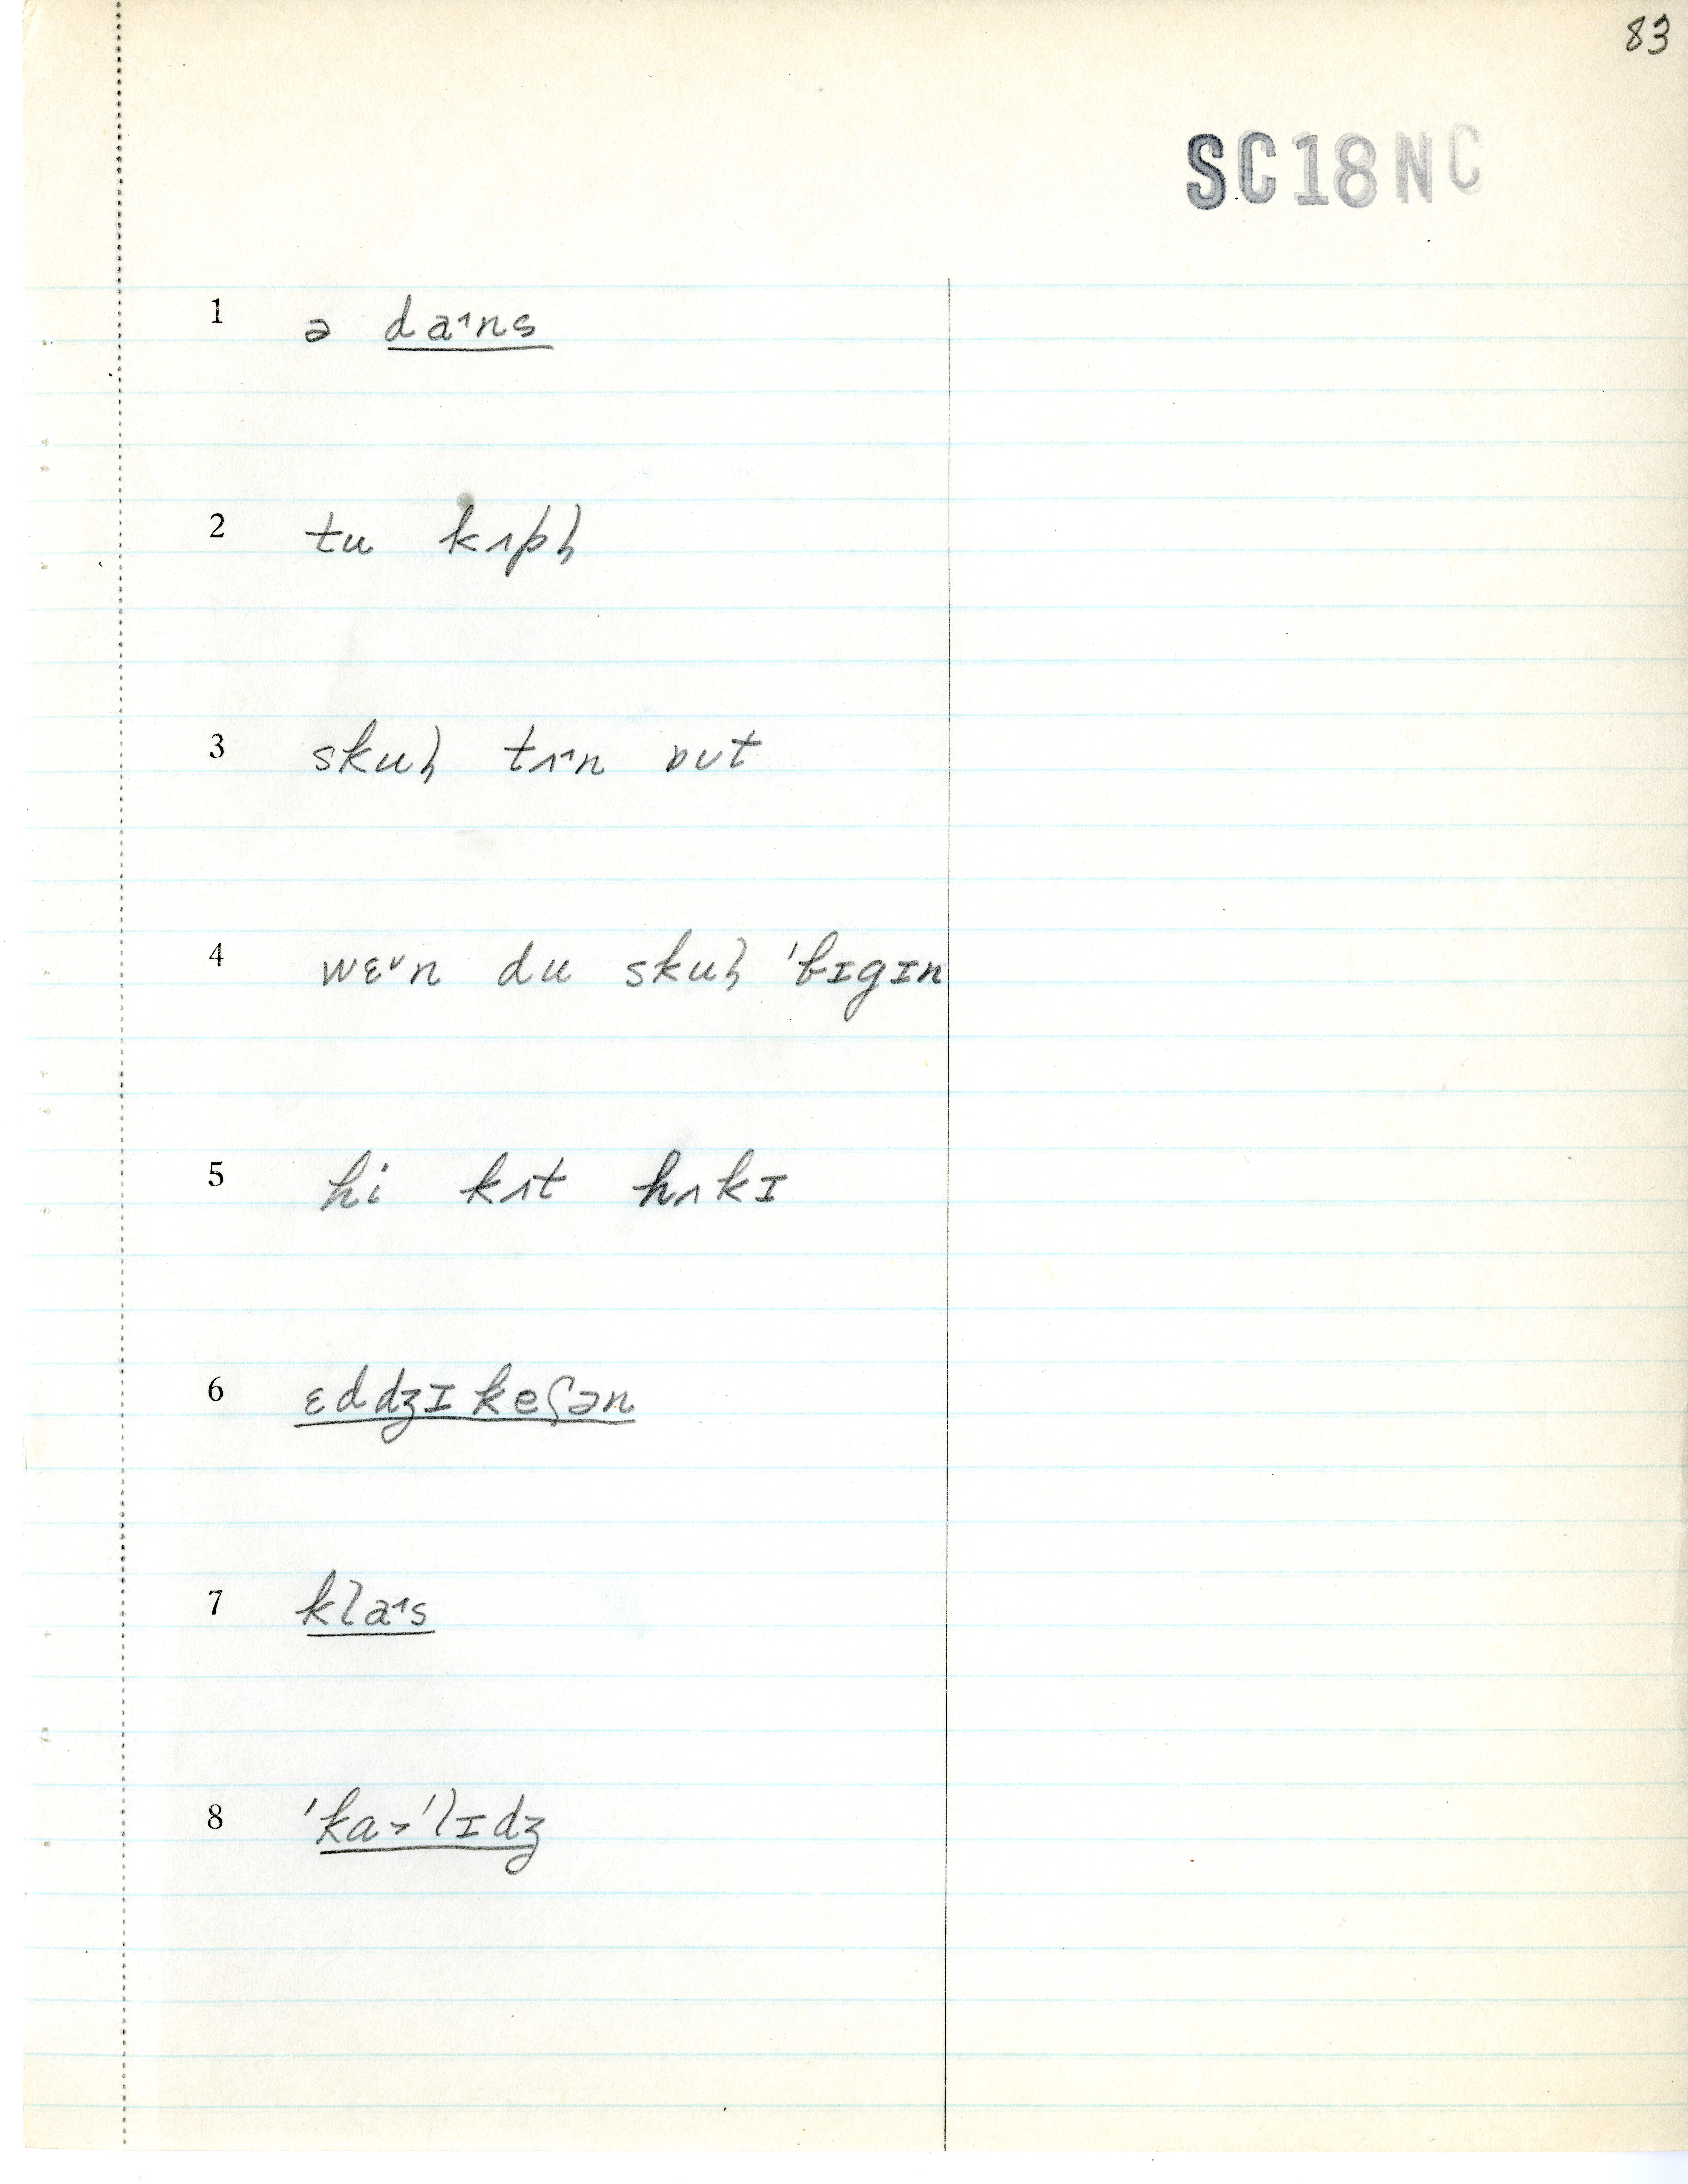 83
SC18NC
1 ə da˄ns
2 tu kʌpl̩
3 skul̩ tʌ˄n ɒʊt
4 wɛ˅n du skul̩ 'bɪgɪn
5 hi kʌt hʌkɪ
6 ɛddʒɪkeʃən
7 kla˄s
8 'ka˃'lɪdʒ